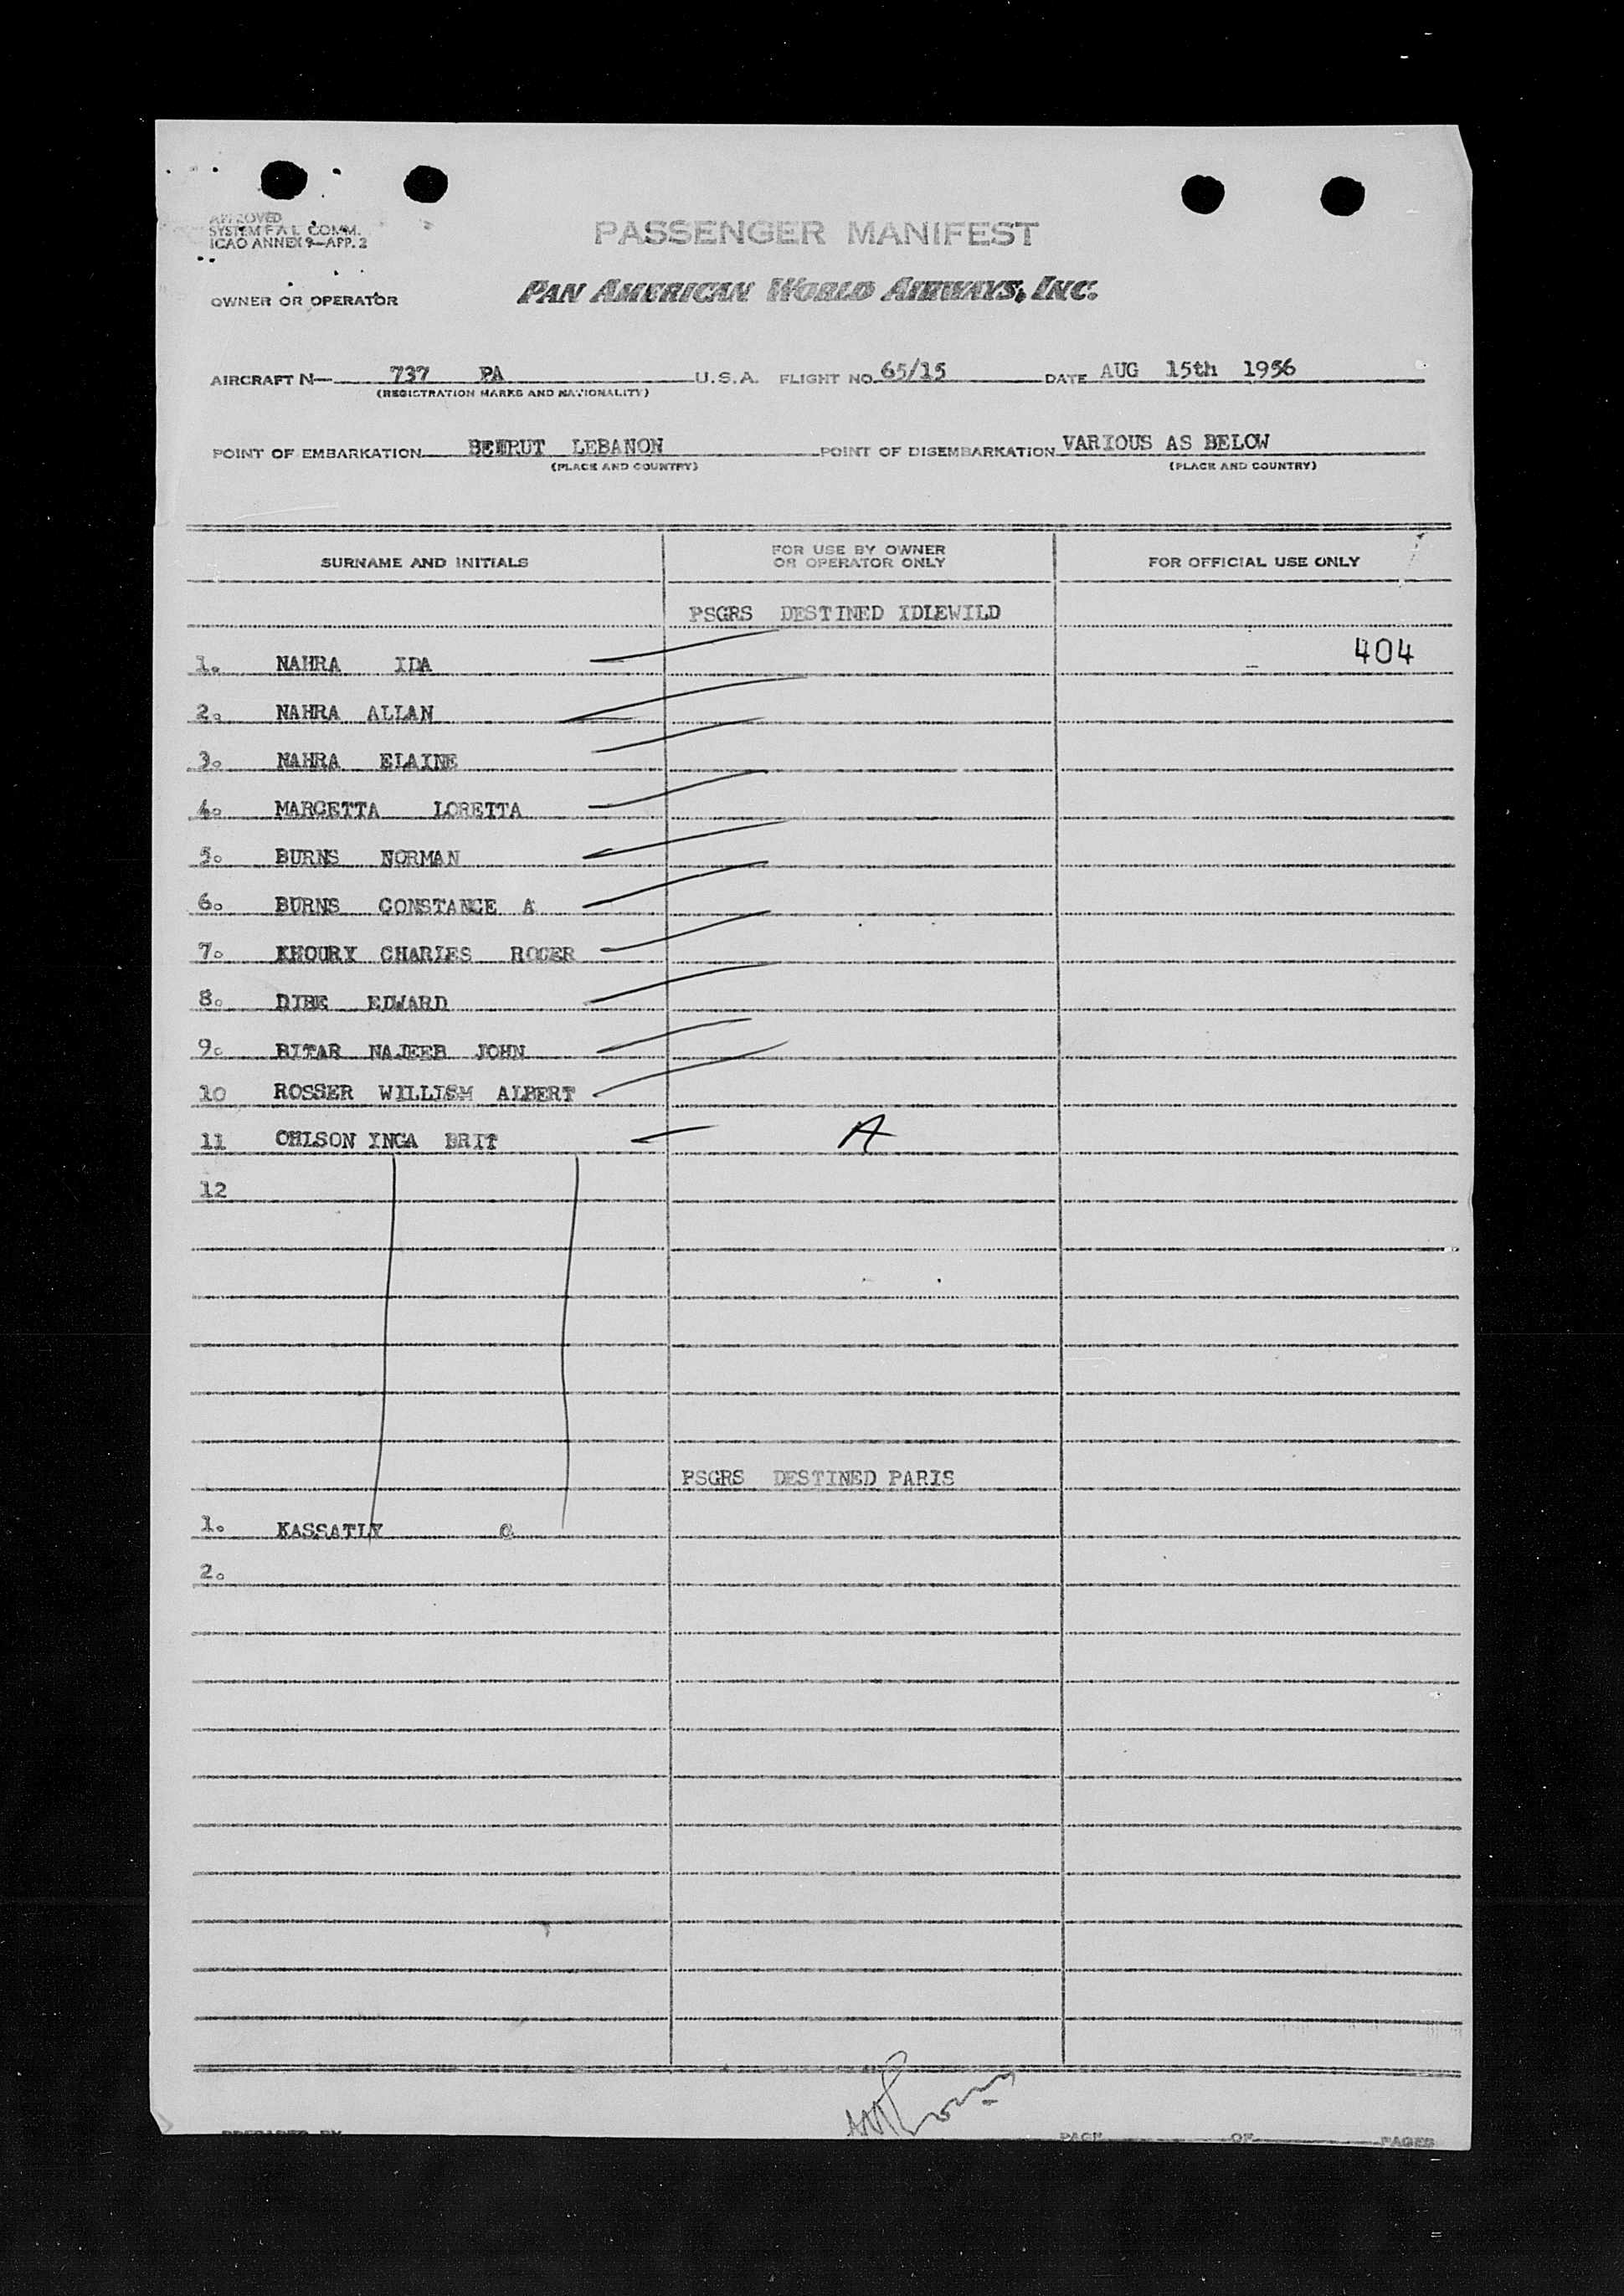 APPROVED
SYSTEM F A L COMM.
ICAO ANNEX 9—APP. 2
PASSENGER MANIFEST
OWNER OR OPERATOR PAN AMERICAN WORLD AIRWAYS, INC.
AIRCRAFT N— 737 PA U.S.A. FLIGHT NO. 65/15 DATE AUG 15th 1956
(REGISTRATION MARKS AND NATIONALITY)
POINT OF EMBARKATION BEIRUT LEBANON POINT OF DISEMBARKATION VARIOUS AS BELOW
(PLACE AND COUNTRY) (PLACE AND COUNTRY)
SURNAME AND INITIALS FOR USE BY OWNER OR OPERATOR ONLY FOR OFFICIAL USE ONLY
PSGRS DESTINED IDLEWILD
1. NAHRA IDA 404
2. NAHRA ALLAN
3. NAHRA ELAINE
4. MARCETTA LORETTA
5. BURNS NORMAN
6. BURNS CONSTANCE A
7. KHOURY CHARLES ROGER
8. DIBE EDWARD
9. BITAR NAJEEB JOHN
10 ROSSER WILLISM ALBERT
11 OHLSON INGA BRIT A
12
PSGRS DESTINED PARIS
1. KASSATLY
2.
PREPARED BY PAGE OF PAGES